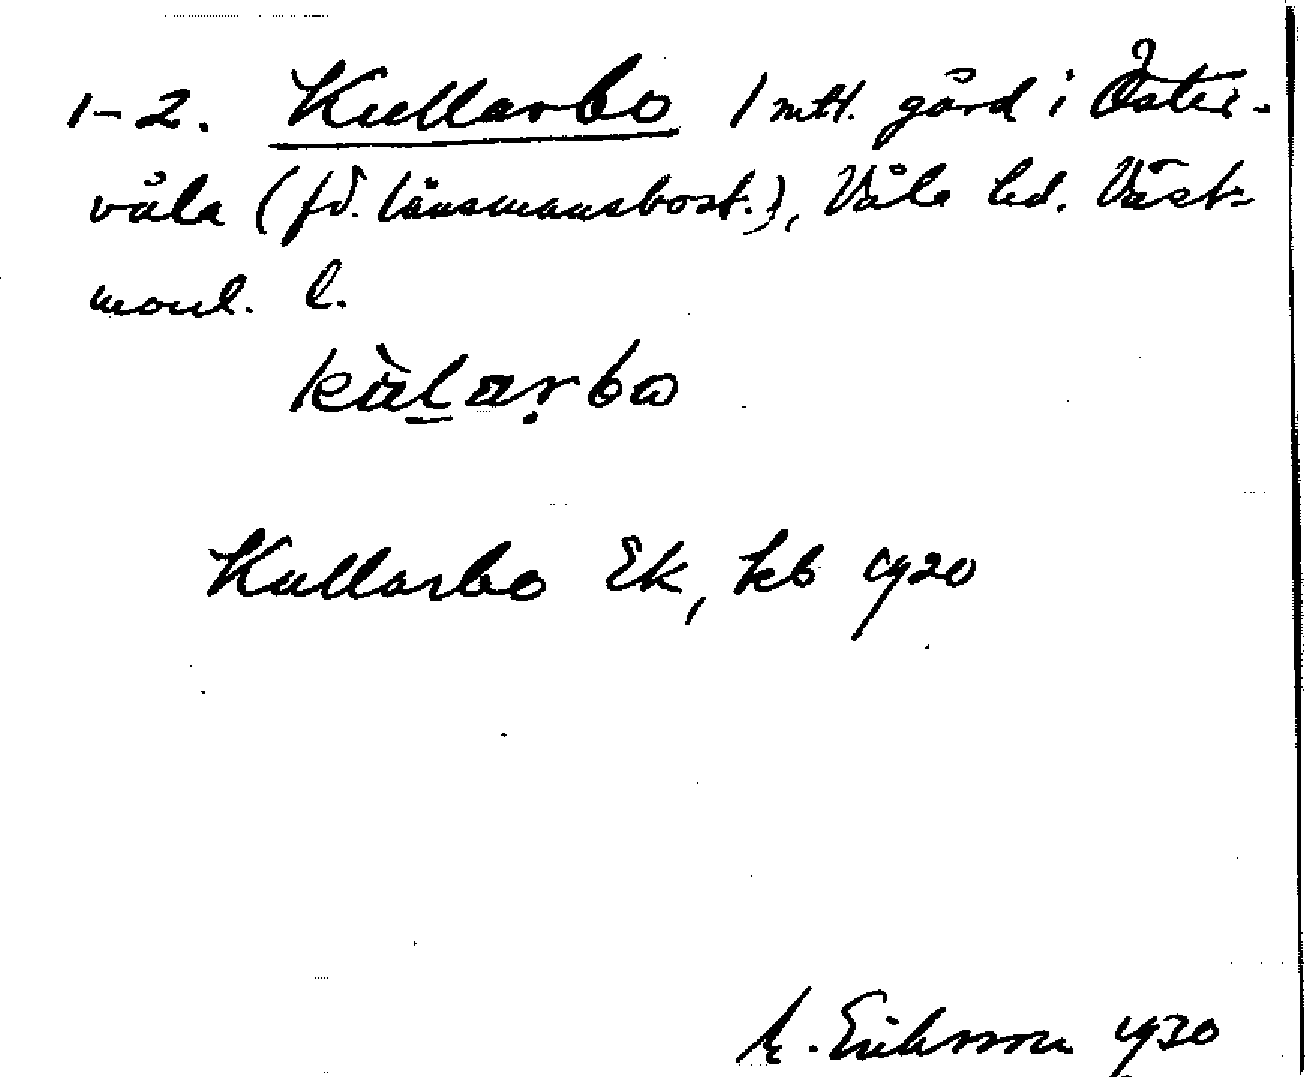 1-2. Kullarbo 1 mtl. gård i Öster-
våla (fd. länsmansbost.), Våla hd. Väst-
monl. l.
kùlarbo
Kullarbo Ek, kb 1920
M. Eriksson 1930